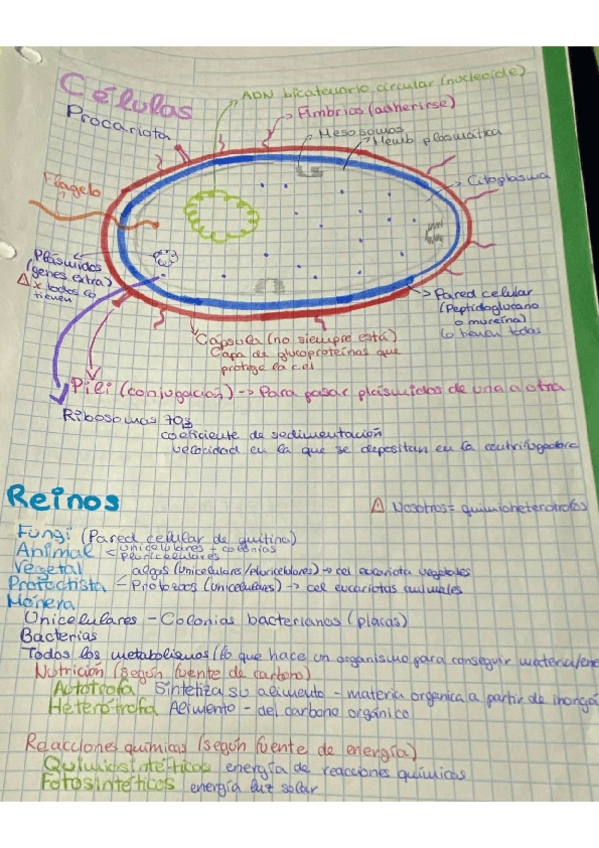 Células
Procariota
ADN bicatenario circular (nucleoide)
Fimbrias (adherirse)
Mesosomas
Memb plasmática
Citoplasma
Flagelo
Plásmidos
(genes extra)
⚠ x todos lo
tienen
Pared celular
(Peptidoglucano
o mureína)
lo tienen todas
Cápsula (no siempre está)
Capa de glucoproteínas que
protege la cel
Pili (conjugación) -> Para pasar plásmidos de una a otra
Ribosomas 70s
coeficiente de sedimentación
velocidad en la que se depositan en la centrifugadora
Reinos
⚠ Nosotros = quimioheterótrofos
Fungi (Pared celular de quitina)
Animal < unicelulares - colonias
pluricelulares
Vegetal
algas (Unicelulares/pluricelulares) -> cel eucariota vegetales
Protoctista - Protozoos (Unicelulares) -> cel eucariotas animales
Mónera
Unicelulares - Colonias bacterianas (placas)
Bacterias
Todos los metabolismos (lo que hace un organismo para conseguir materia/ene
Nutrición (según fuente de carbono)
Autótrofa Sintetiza su alimento - materia organica a partir de inorgá
Heterótrofa Alimento - del carbono orgánico
Reacciones químicas (según fuente de energía)
Quimiosintéticos energía de reacciones químicas
Fotosintéticos energía luz solar